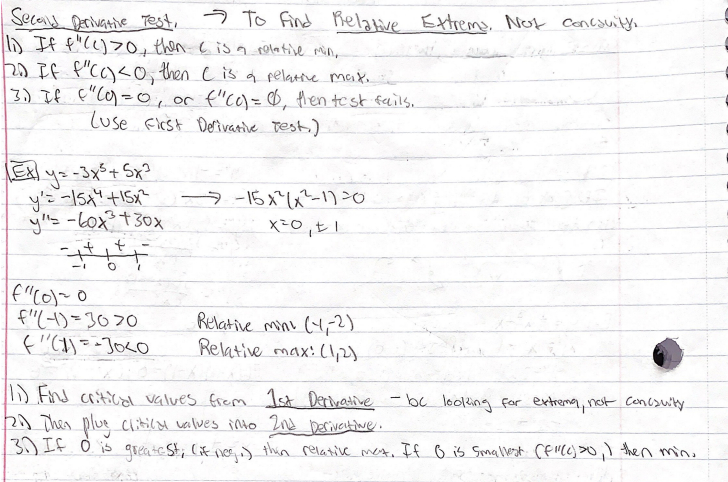 Second Derivative Test. → To Find Relative Extrema. Not concavity.
1.) If f"(c)>0, then c is a relative min.
2.) If f"(c)<0, then c is a relative max.
3.) If f"(c)=0, or f"(c)=Ø, then test fails.
(use First Derivative Test.)
Ex) y=-3x⁵+5x³
y'=-15x⁴+15x² → -15x²(x²-1)=0
y"=-60x³+30x x=0,±1
- + + -
-1 0 1
f"(0)=0
f"(-1)=30>0 Relative min: (-1,-2)
f"(1)=-30<0 Relative max: (1,2)
1.) Find critical values from 1st Derivative - bc looking for extrema, not concavity
2.) Then plug critical values into 2nd Derivative.
3.) If 0 is greatest, (if neg.) then relative max. If 0 is smallest (f"(c)>0,) then min.